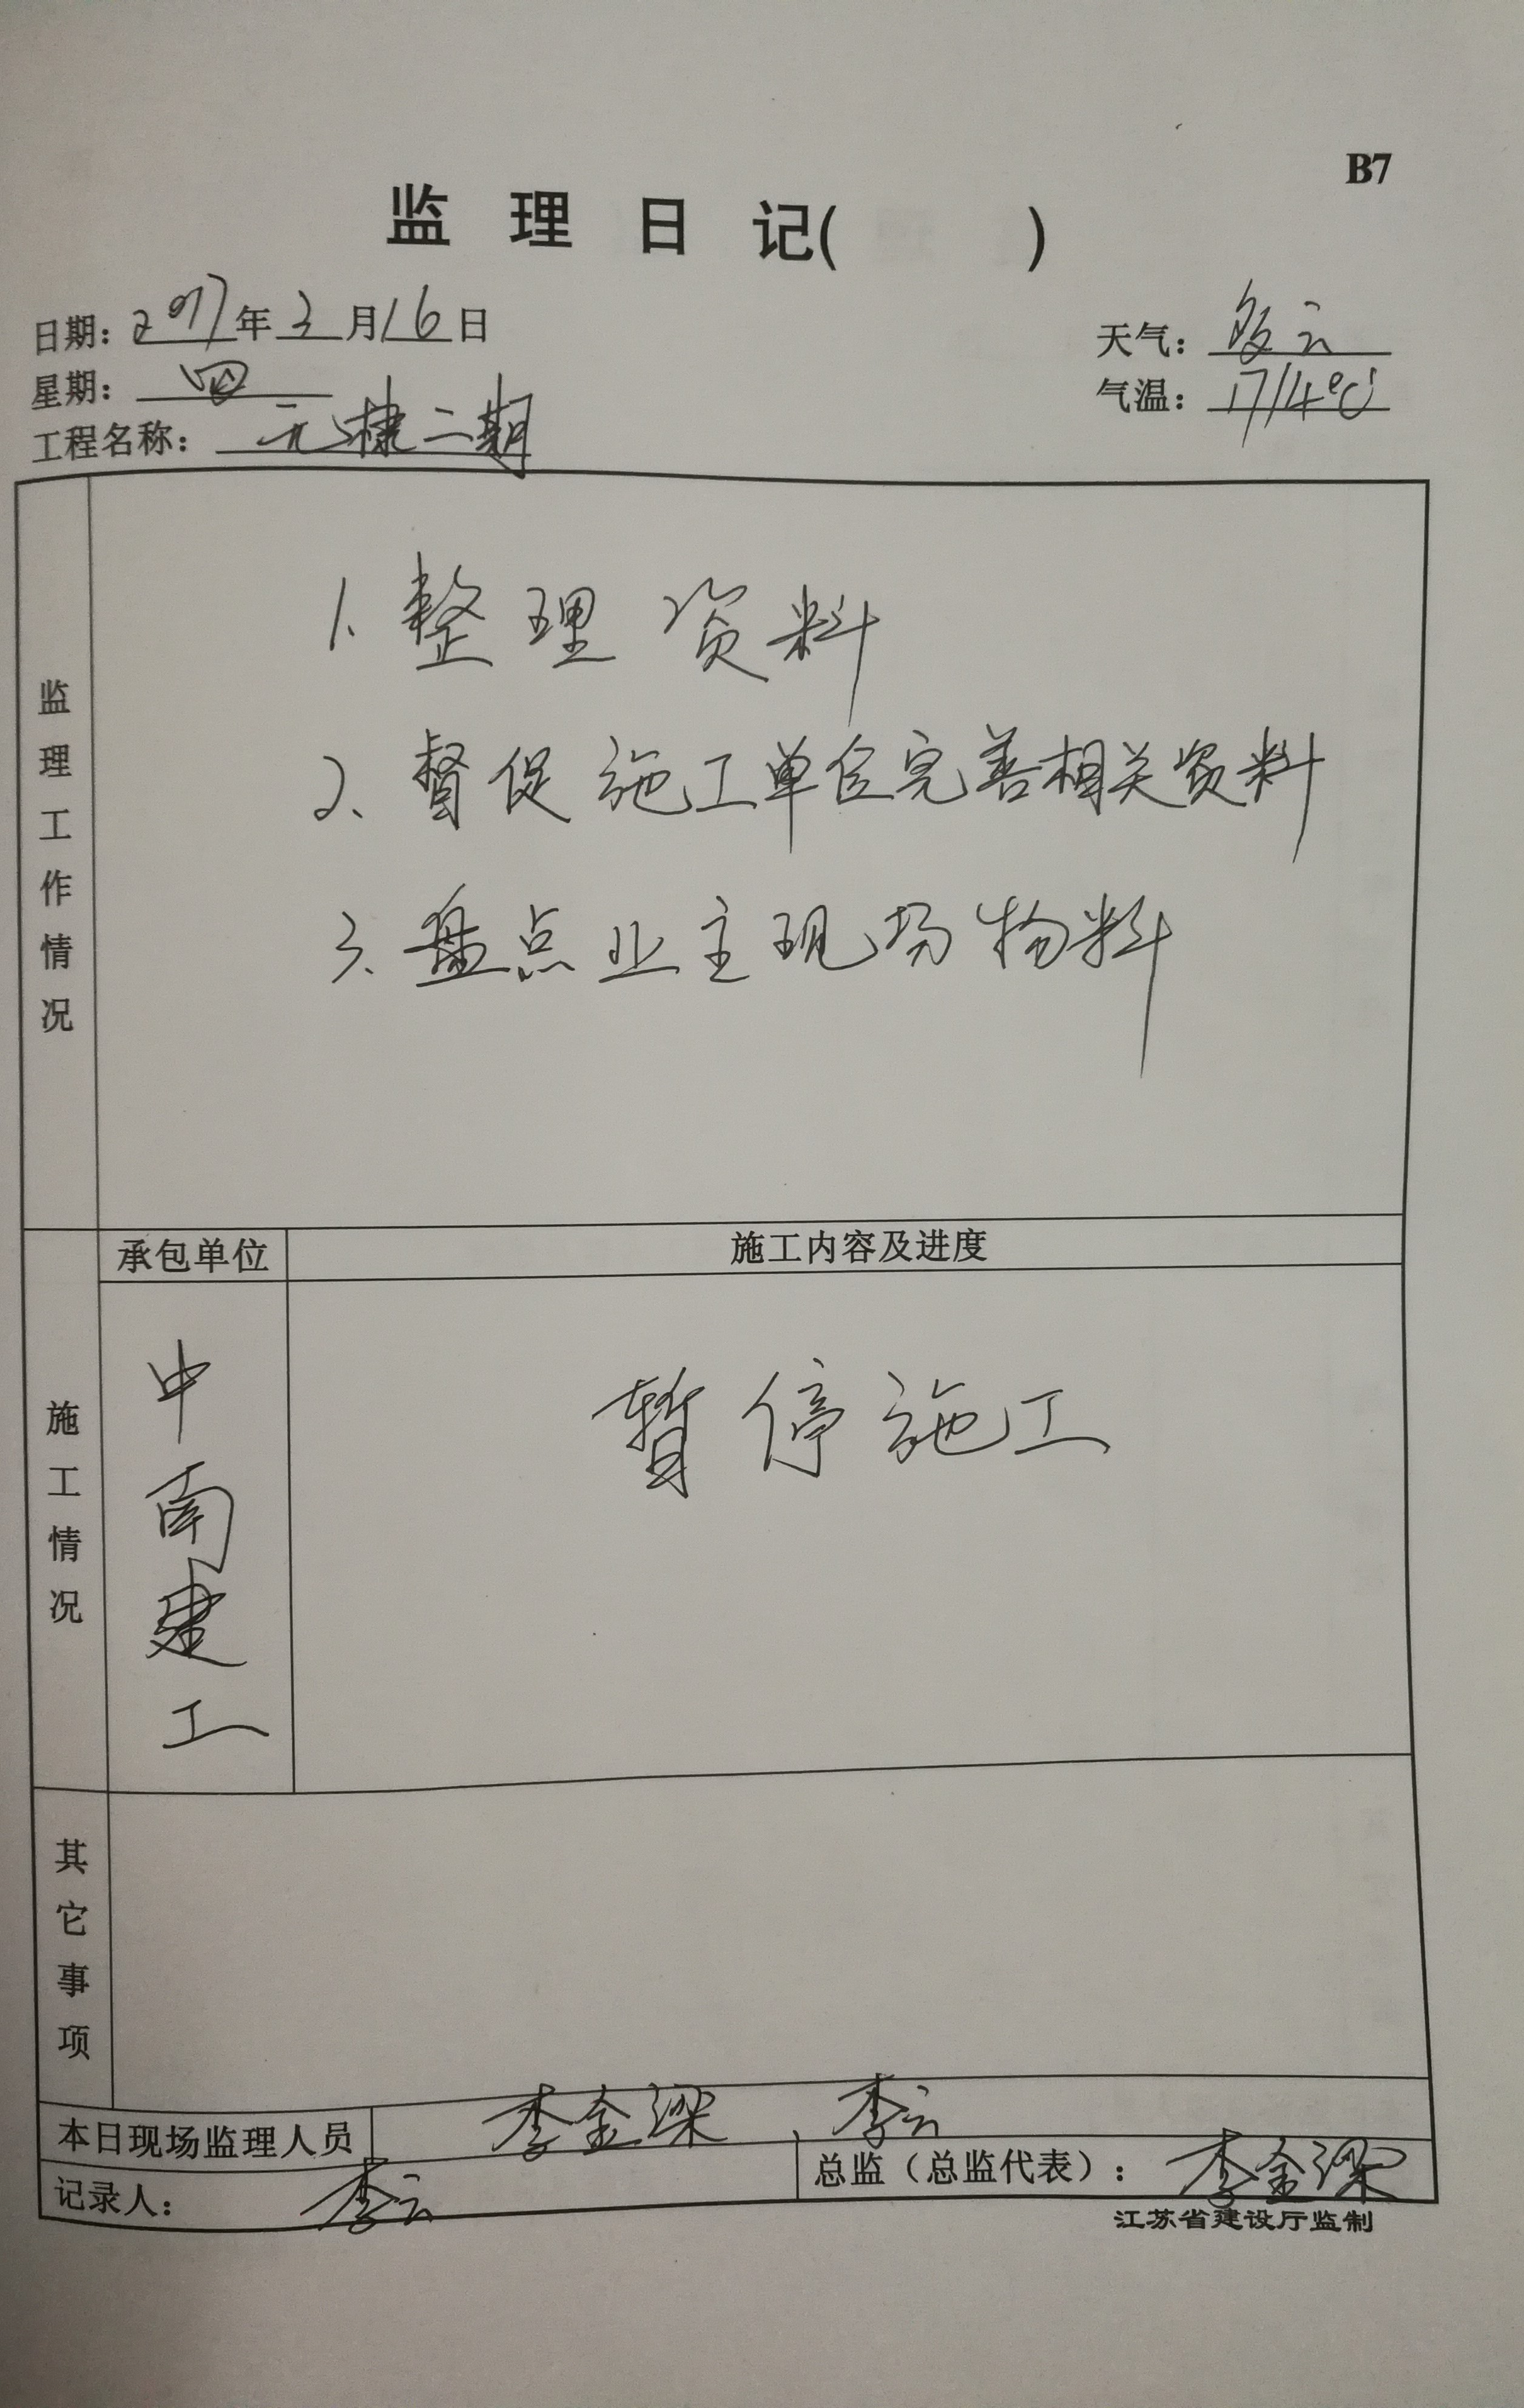 B7
监理日记( )
日期: 2017年3月16日
天气: 多云
星期: 四
气温: 17/4℃
工程名称: 元棣二期
监理工作情况
1、整理资料
2、督促施工单位完善相关资料
3、盘点业主现场物料
施工情况
承包单位 施工内容及进度
中南建工 暂停施工
其它事项
本日现场监理人员 李金深、李云
记录人: 李云 总监(总监代表): 李金深
江苏省建设厅监制